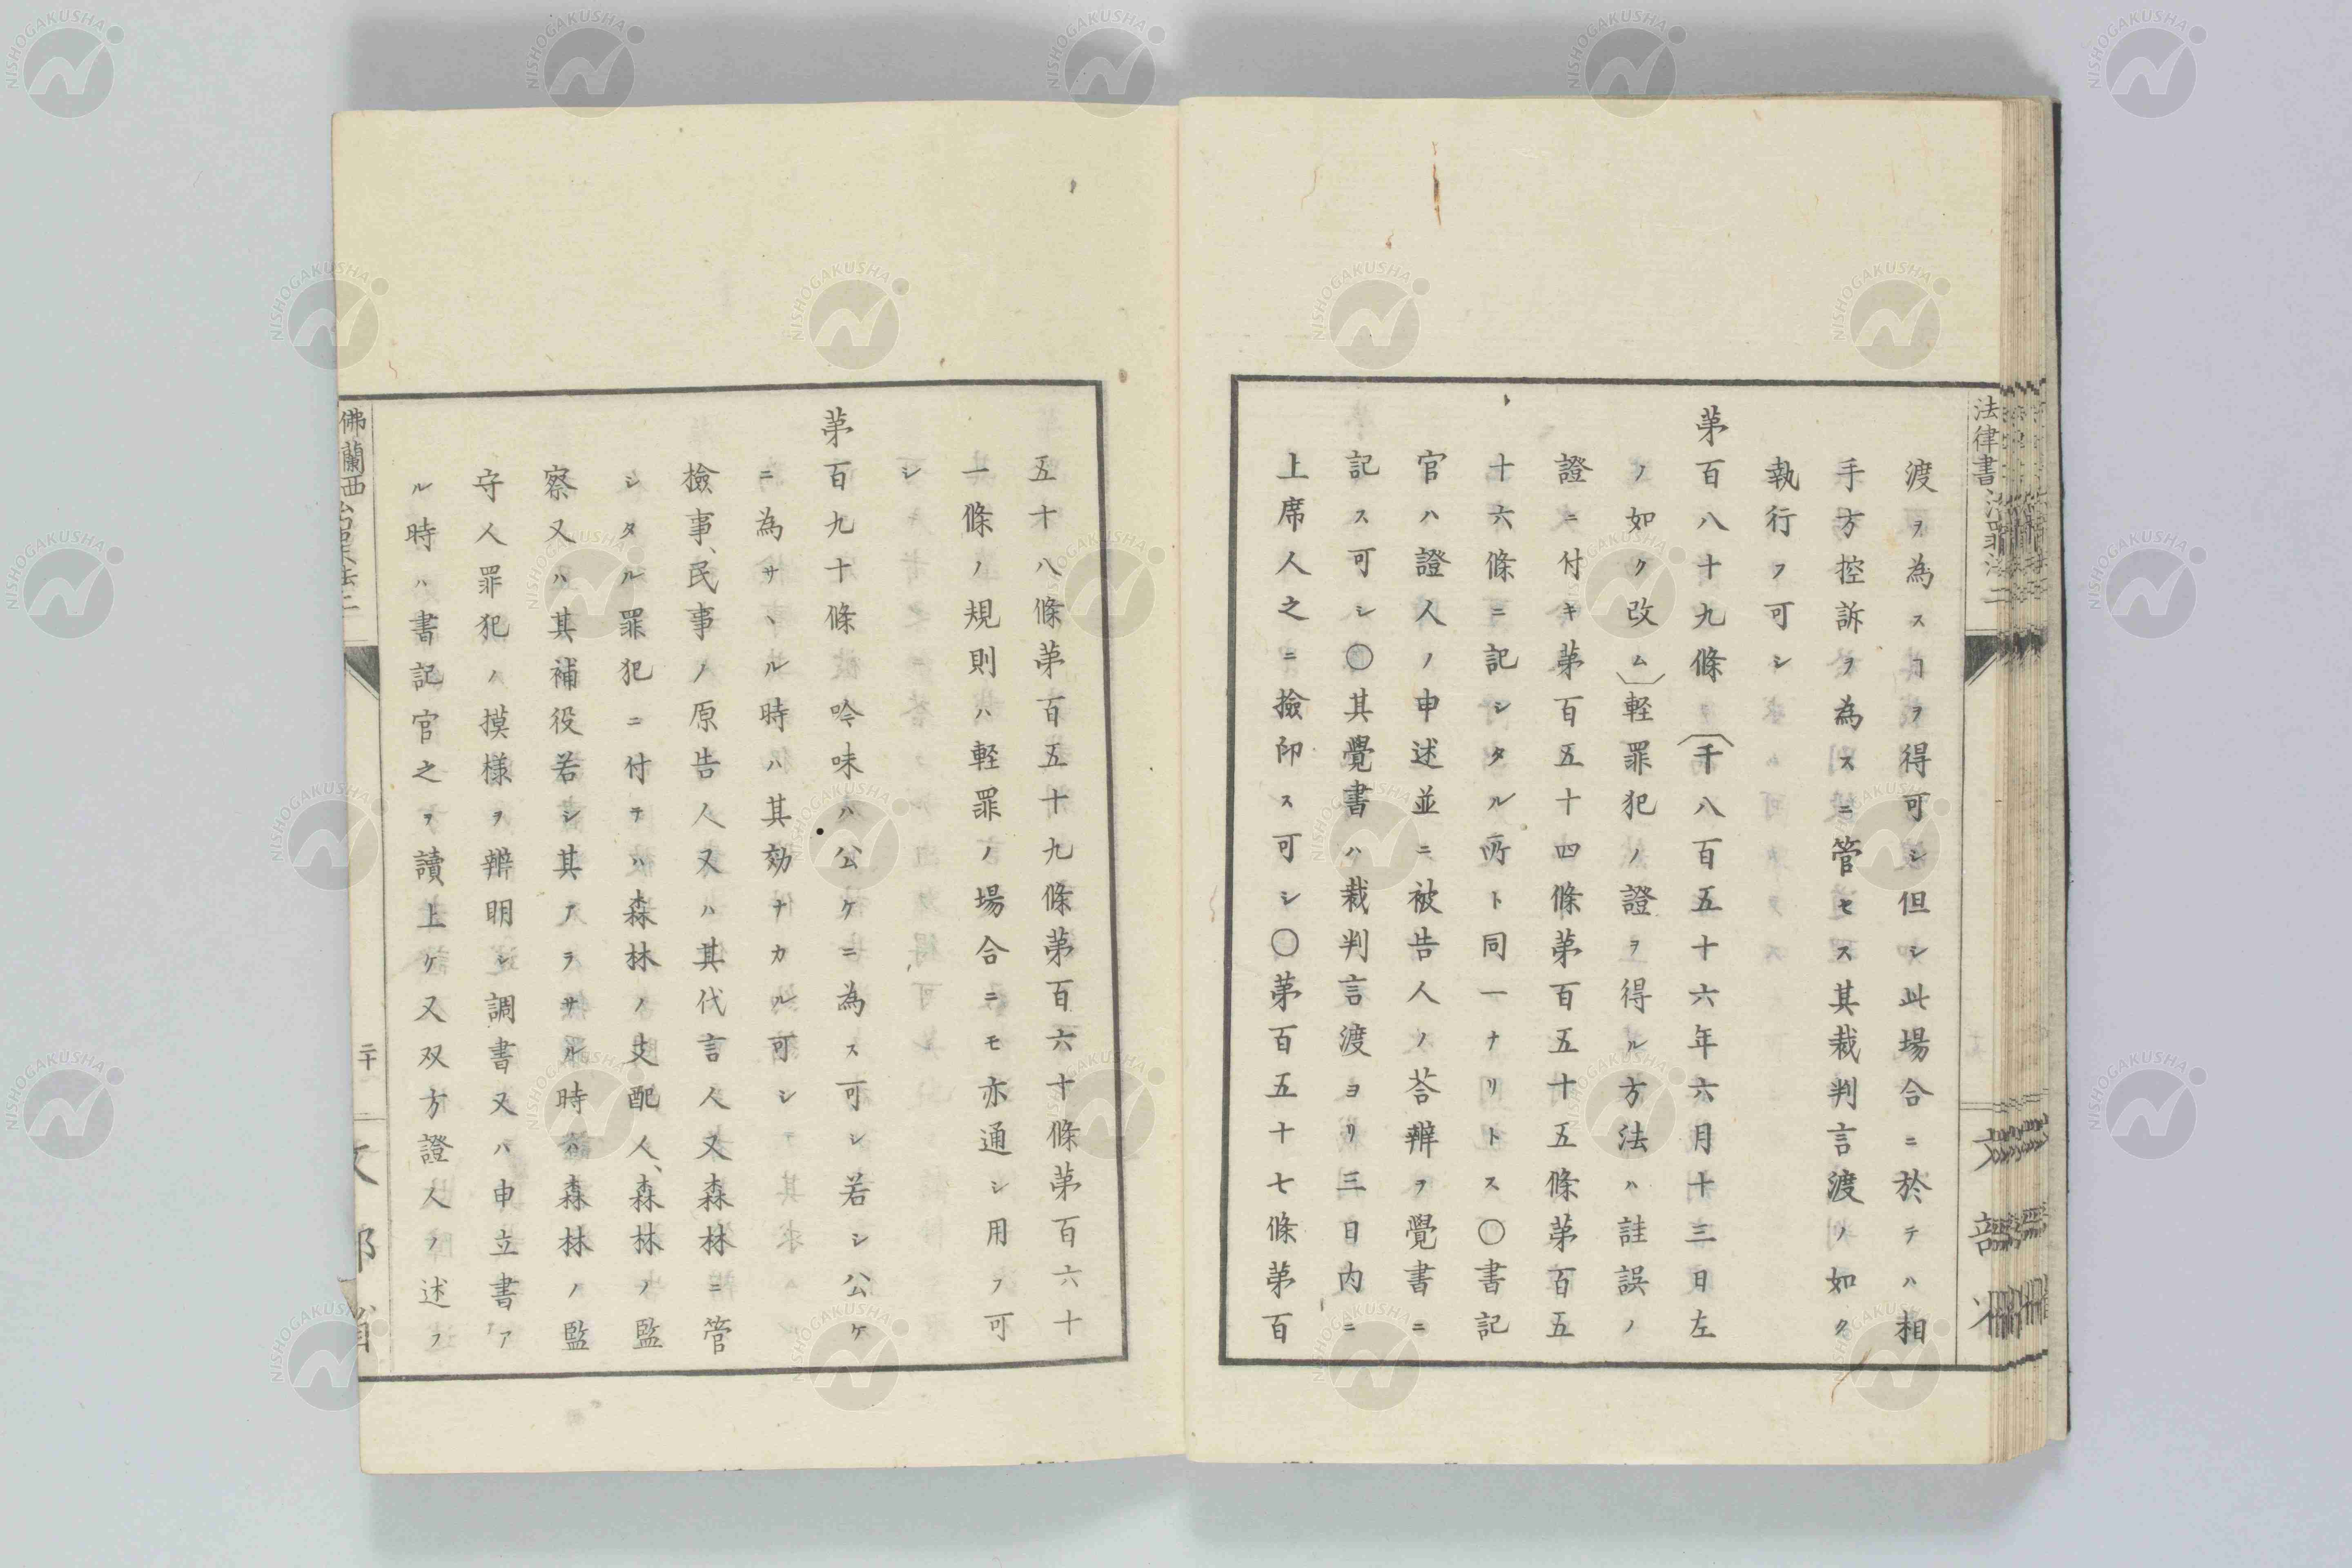 渡ヲ為スヿヲ得可シ但シ此場合ニ於テハ相
手方控訴ヲ為スニ管セス其裁判言渡ノ如ク
執行フ可シ
苐百八十九條〔千八百五十六年六月十三日左
ノ如ク改ム〕軽罪犯ノ證ヲ得ル方法ハ註誤ノ
證ニ付キ苐百五十四條苐百五十五條苐百五
十六條ニ記シタル所ト同一ナリトス〇書記
官ハ證人ノ申述並ニ被告人ノ荅辨ヲ覺書ニ
記ス可シ〇其覺書ハ裁判言渡ヨリ三日内ニ
上席人之ニ撿印ス可シ〇苐百五十七條苐百
五十八條苐百五十九條苐百六十條苐百六十
一條ノ規則ハ軽罪ノ場合ニモ亦通シ用フ可
シ
苐百九十條吟味ハ公ケニ為ス可シ若シ公ケ
ニ為サヽル時ハ其効ナカル可シ
撿事、民事ノ原告人又ハ其代言人又森林ニ管
シタル罪犯ニ付テハ森林ノ支配人、森林ノ監
察又ハ其補役若シ其アラサル時ハ森林ノ監
守人罪犯ノ摸様ヲ辨明シ調書又ハ申立書ア
ル時ハ書記官之ヲ讀上ケ又双方證人ノ述フ
法律書
佛蘭西
二十
文部省
NISHOGAKUSHA